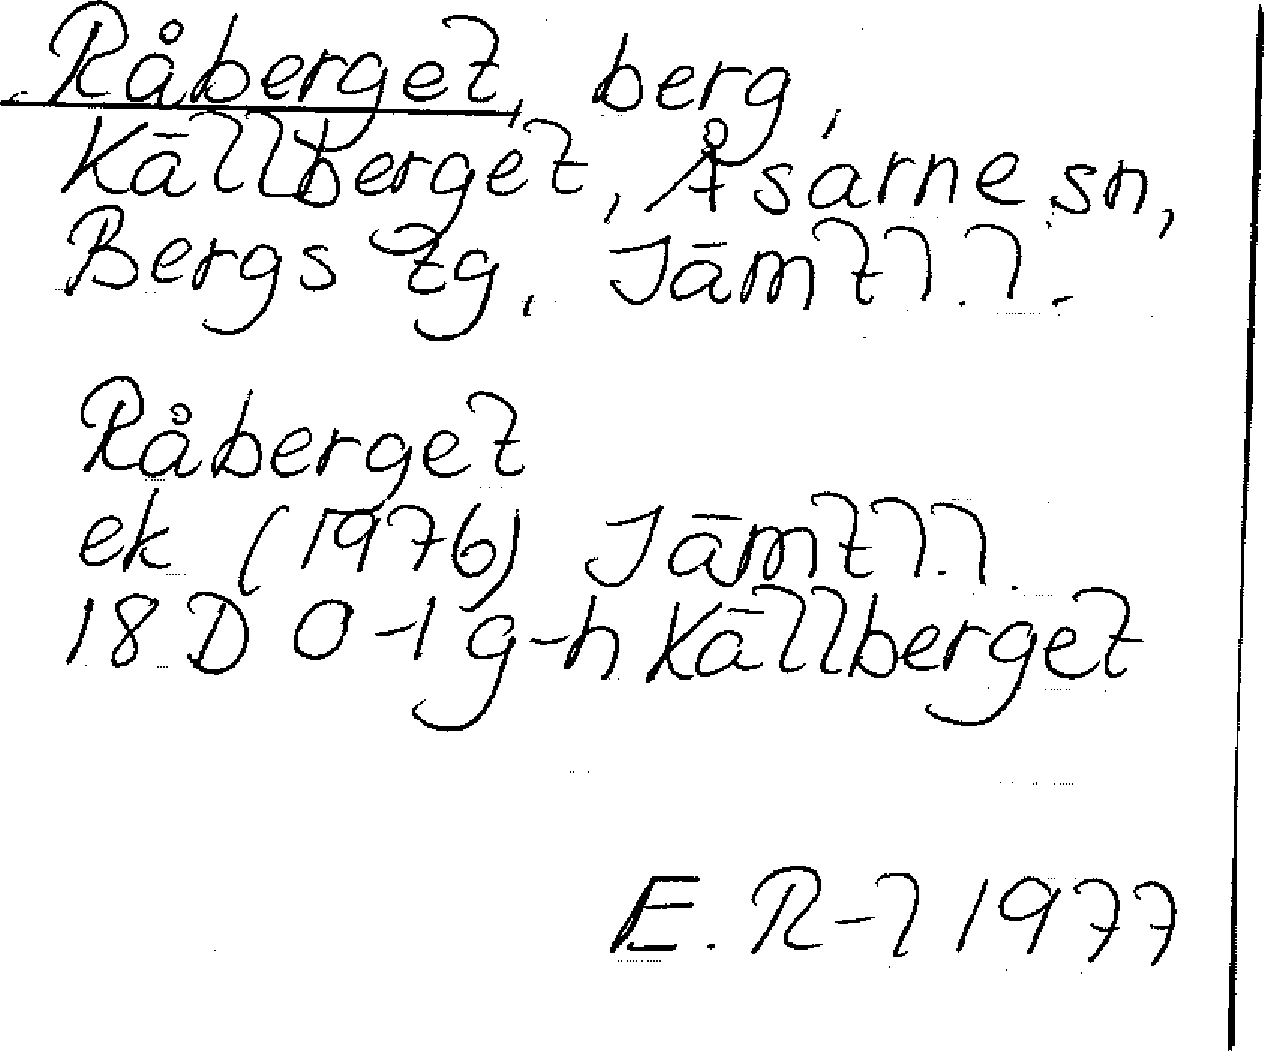 Råberget, berg,
Källberget, Åsarne sn,
Bergs tg, Jämtl.l.
Råberget
ek (1976) Jämtl.l.
18 D 0-1 g-h Källberget
E. R-l 1977